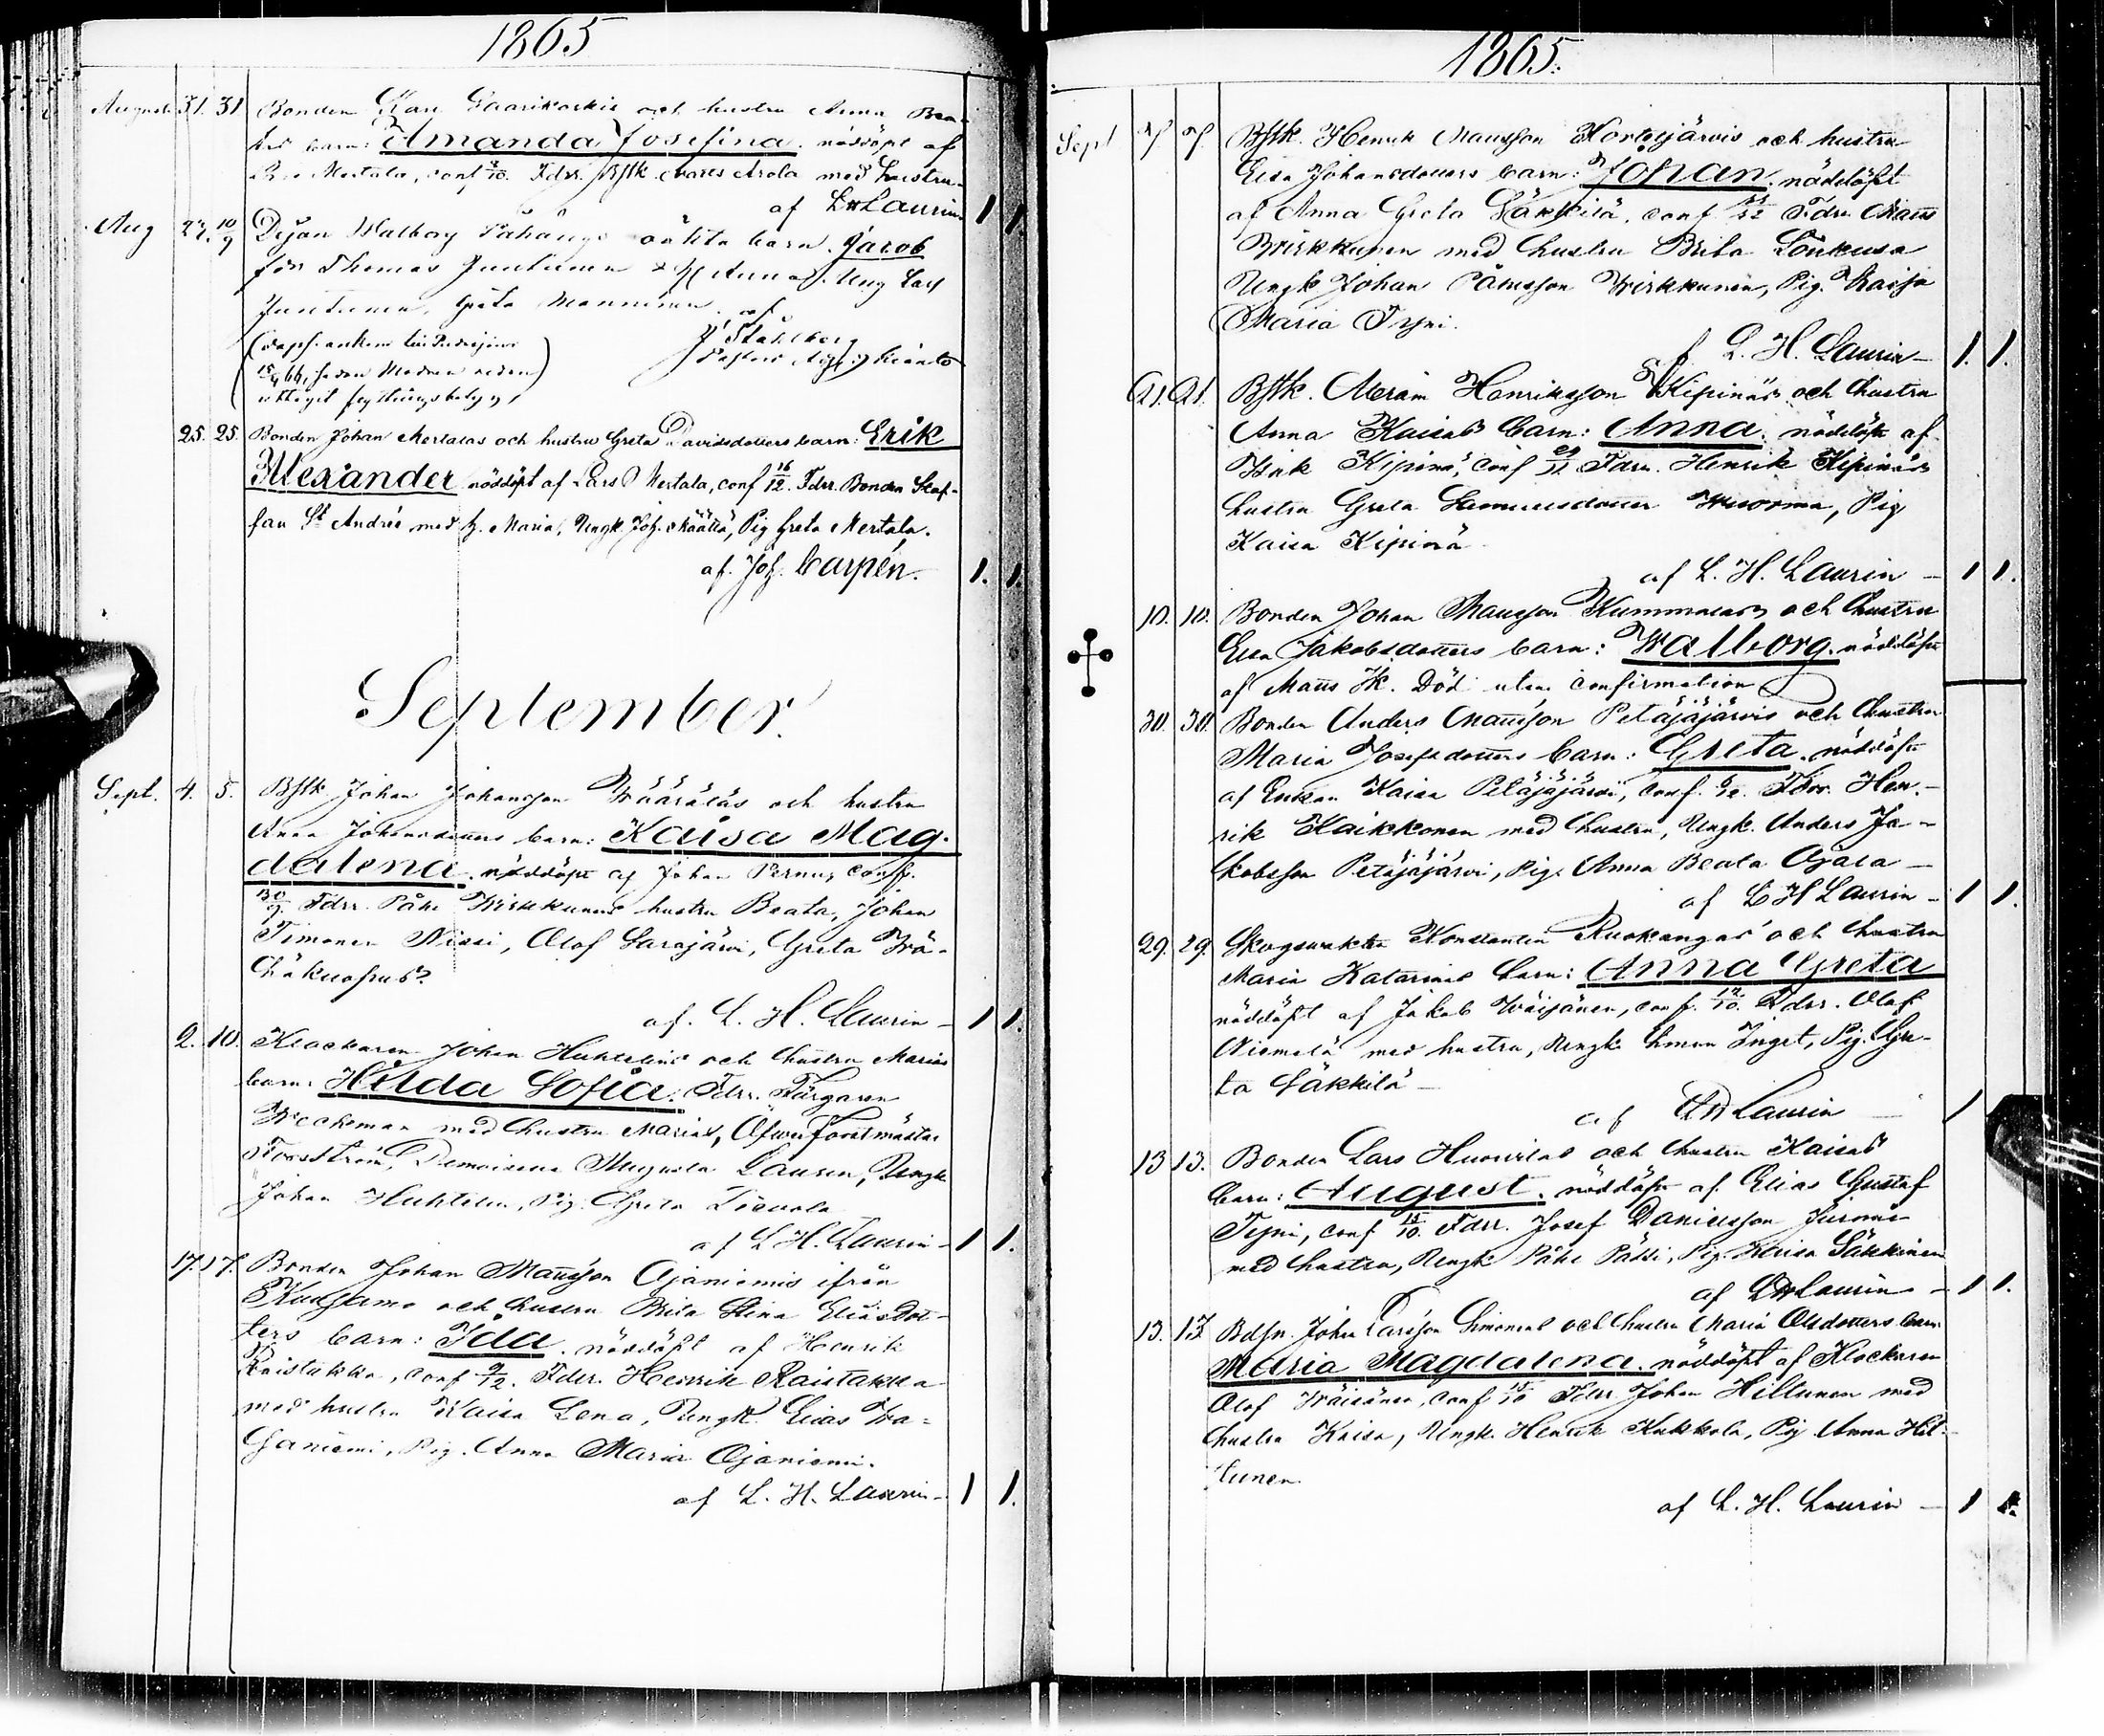 1865
Augusti 31. 31. Bonden Karl Saarikoskis och hustru Anna Bea-
tas barn: Amanda Josefina. nöddöpt af
Mertala, conf Fdrr. Bstk. Mares Arola med hustru
af L H Laurin 1 1.
Aug 27. 10/9 Dejan Walborg Påhångs oäkta barn. Jacob
för Thomas Juntunen & H Anna. Ung Carl
Juntunen, Greta Manninen. af
J. Ståhlberg
Pastors Kianto
15/4 66, sedan Modren redan
uttagit flyttningsbetyg
25. 25. Bonden Johan Mertalas och hustru Greta Davidsdotters barn: Erik
Alexander nöddöpt af Lars Mertala, conf 16/12. Fdrr. Bonden Staf-
fan St Andrée med h. Maria, Ungk. Joh. Määttä, Pig Greta Mertala.
af. Joh. Carpén. 1. 1.
September.
Sept. 4. 5. Bstk. Johan Johansson Wäärälas och hustru
Anna Johansdotters barn: Kaisa Mag-
dalena. nöddöpt af Johan Pernu, conf.
30/9. Fdrr. Påhl Wirkkunens hustru Beata, Johan
Timonen Nissi, Olof Sarajärvi, Greta Wä-
af. L. H. Laurin 1 1.
2. 10. Klockaren Johan Huhtelins och hustru Marias
barn: Hilda Sofia. Fdrr. Färgaren
Weckman med hustru Maria, Öfverforstmästar
Forsström, Demoiselle Augusta Laurin, Ungk.
Johan Huhtelin, Pig. Greta
af L H. Laurin 1 1.
17. 17. Bonden Johan Månsson Ojaniemis ifrån
Kuusamo och hustru Brita Stina Eliasdot-
ters barn: Ida. nöddöpt af Henrik
Raistakka, conf 9/12. Fdrr. Henrik Raistakka
med hustru Kaisa Lena, Ungk. Elias
Pig. Anna Maria Ojaniemi.
af L. H. Laurin 1 1.
1865.
Sept 7. 7. Bstk. Henrik Månsson Kortesjärvis och hustru
Elsa Johansdotters barn: Johan. nöddöpt
af Anna Greta Säkkilä, conf Fdrr. Måns
Wirkkunen med hustru Brita Lonkusa
Ungk Johan Påhlsson Wirkkunen, Pig. Kaisa
Maria Tyni.
af L. H. Laurin 1. 1.
21. 21. Bstk. Abram Henriksson Kipinäs och hustru
Anna Kaisas barn: Anna. nöddöpt af
Isak Kipinä, conf Fdrr. Henrik Kipinäs
hustru Greta Samuelsdotter Wuorma, Pig
Kaisa Kipinä
af L. H. Laurin 1 1.
10. 10. Bonden Johan Månsson Kummalas och hustru
Elsa Jakobsdotters barn: Walborg. nöddöpt
af Måns Hk. Död utan confirmation
30. 30. Bonden Anders Månsson Petäjäjärvis och hustru
Maria Josefsdotters barn: Greta. nöddöpt
af Enkan Kaisa Petäjäjärvi, conf. Fdrr. Hen-
rik Kaikkonen med hustru, Ungk. Anders Ja-
kobsson Petäjäjärvi, Pig. Anna Beata Ojala
af L H Laurin 1 1.
29. 29. Skogswaktar Konstantin Ruokangas och hustru
Maria Katarinas barn: Anna Greta
nöddöpt af Jakob Wäisänen, conf. Fdrr. Olof
Niemelä med hustru, Ungk. Inget, Pig. Gre-
ta Säkkilä
af L H Laurin 1
13 13. Bonden Lars Huovilas och hustru Kaisas
barn: August. nöddöpt af Elias Gustaf
Tyni, conf 15/10. Fdrr. Josef Danielsson Jurmu
med hustru, Ungk. Påhl Pätsi, Pig. Kaisa Säkkinen
af L H Laurin 1 1.
13. 13. Bdsn. Johan Larsson Simonens och hustru Maria Olsdotters barn
Maria Magdalena. nöddöpt af Klockaren
Olof Wäisänen, conf 15/10 Fdrr Johan Hiltunen med
hustru Kaisa, Ungk. Henrik Kukkola, Pig Anna Hil-
tunen.
af L. H. Laurin 1 1.